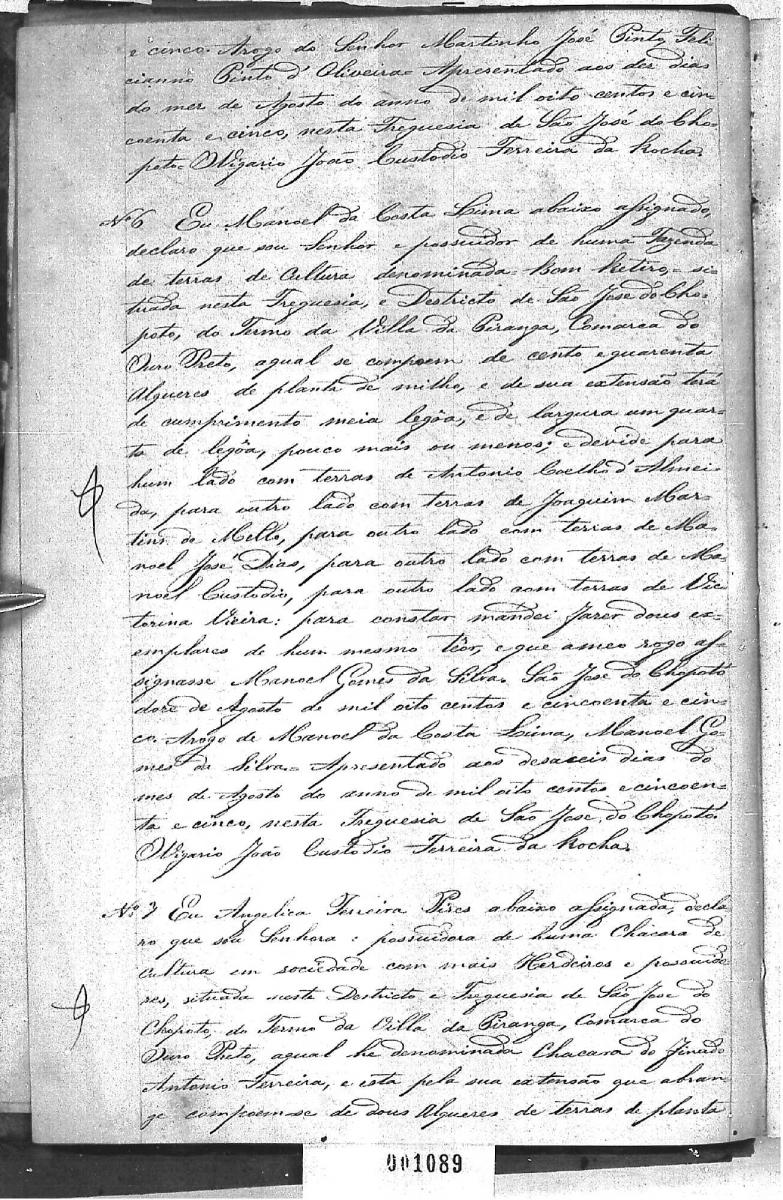 e cinco. Arogo do Senhor Martinho José Pinto, Feli
cianno Pinto d'Oliveira. Apresentado aos dez dias
do mez de Agosto do anno de mil oito centos e cin
coenta e cinco, nesta Freguesia de São José do Cho-
poto. O Vigario João Custodio Ferreira da Rocha.
Nº 6 Eu Manoel da Costa Lima abaixo assignado,
declaro que sou Senhor e possuidor de huma Fazenda
de terras de Cultura denominada - Bom Retiro, - si-
tuada nesta Freguesia, e Destricto de São José do Cho-
poto, do Termo da Villa da Piranga, Comarca do
Ouro Preto, aqual se compoem de cento e quarenta
Alqueres de planta de milho, e de sua extensão terá
de cumprimento meia legôa, e de largura um quar-
to de legôa, pouco mais ou menos; e devide para
hum lado com terras de Antonio Coelho d'Almei-
da, para outro lado com terras de Joaquim Mar-
tins de Mello, para outro lado com terras de Ma-
noel José Dias, para outro lado com terras de Ma-
noel Custodio, para outro lado com terras de Vic
torina Vieira: para constar mandei fazer dous ex-
emplares de hum mesmo têor, e que ameo rogo as-
signasse Manoel Gomes da Silva. São José do Chopotó
doze de Agosto de mil oito centos e cincoenta e cin-
co. Arogo de Manoel da Costa Lima, Manoel Go-
mes da Silva - Apresentado aos desaceis dias do
mes de Agosto do anno de mil oito centos e cincoen-
ta e cinco, nesta Freguesia de São José do Chopotó.
O Vigario João Custodio Ferreira da Rocha.
Nº 7 Eu Angelica Ferreira Pires abaixo assignada, decla
ro que sou Senhora: possuidora de huma Chácara de
Cultura em sociedade com mais Herdeiros e possuido
res, situada neste Destricto e Freguesia de São José do
Chopoto, do Termo da Villa da Piranga, Comarca do
Ouro Preto, aqual he denominada Chacara do Finado
Antonio Ferreira, e esta pela sua extensão que abran-
ge compoem-se de dous Alqueres de terras de planta
001089